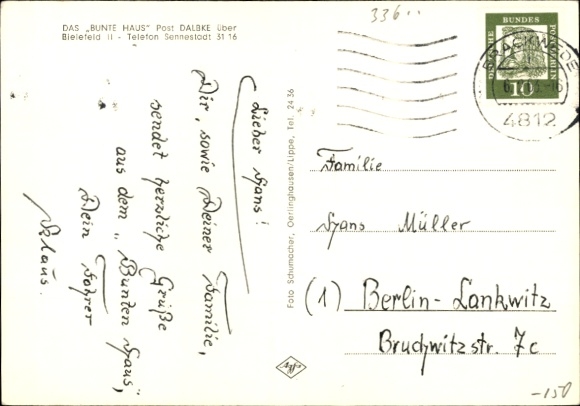 DAS „BUNTE HAUS" Post DALBKE über
Bielefeld II - Telefon Sennestadt 31 16
336
Lieber Hans!
Dir, sowie Deiner Familie,
sendet herzliche Grüße
aus dem „Bunten Haus",
Dein Fahrer
Klaus.
Foto Schumacher, Oerlinghausen/Lippe, Tel. 24 36
DEUTSCHE BUNDESPOST BERLIN
10
BRACKWEDE
4812
Familie
Hans Müller
(1) Berlin-Lankwitz
Bruchwitzstr. 7c
-150